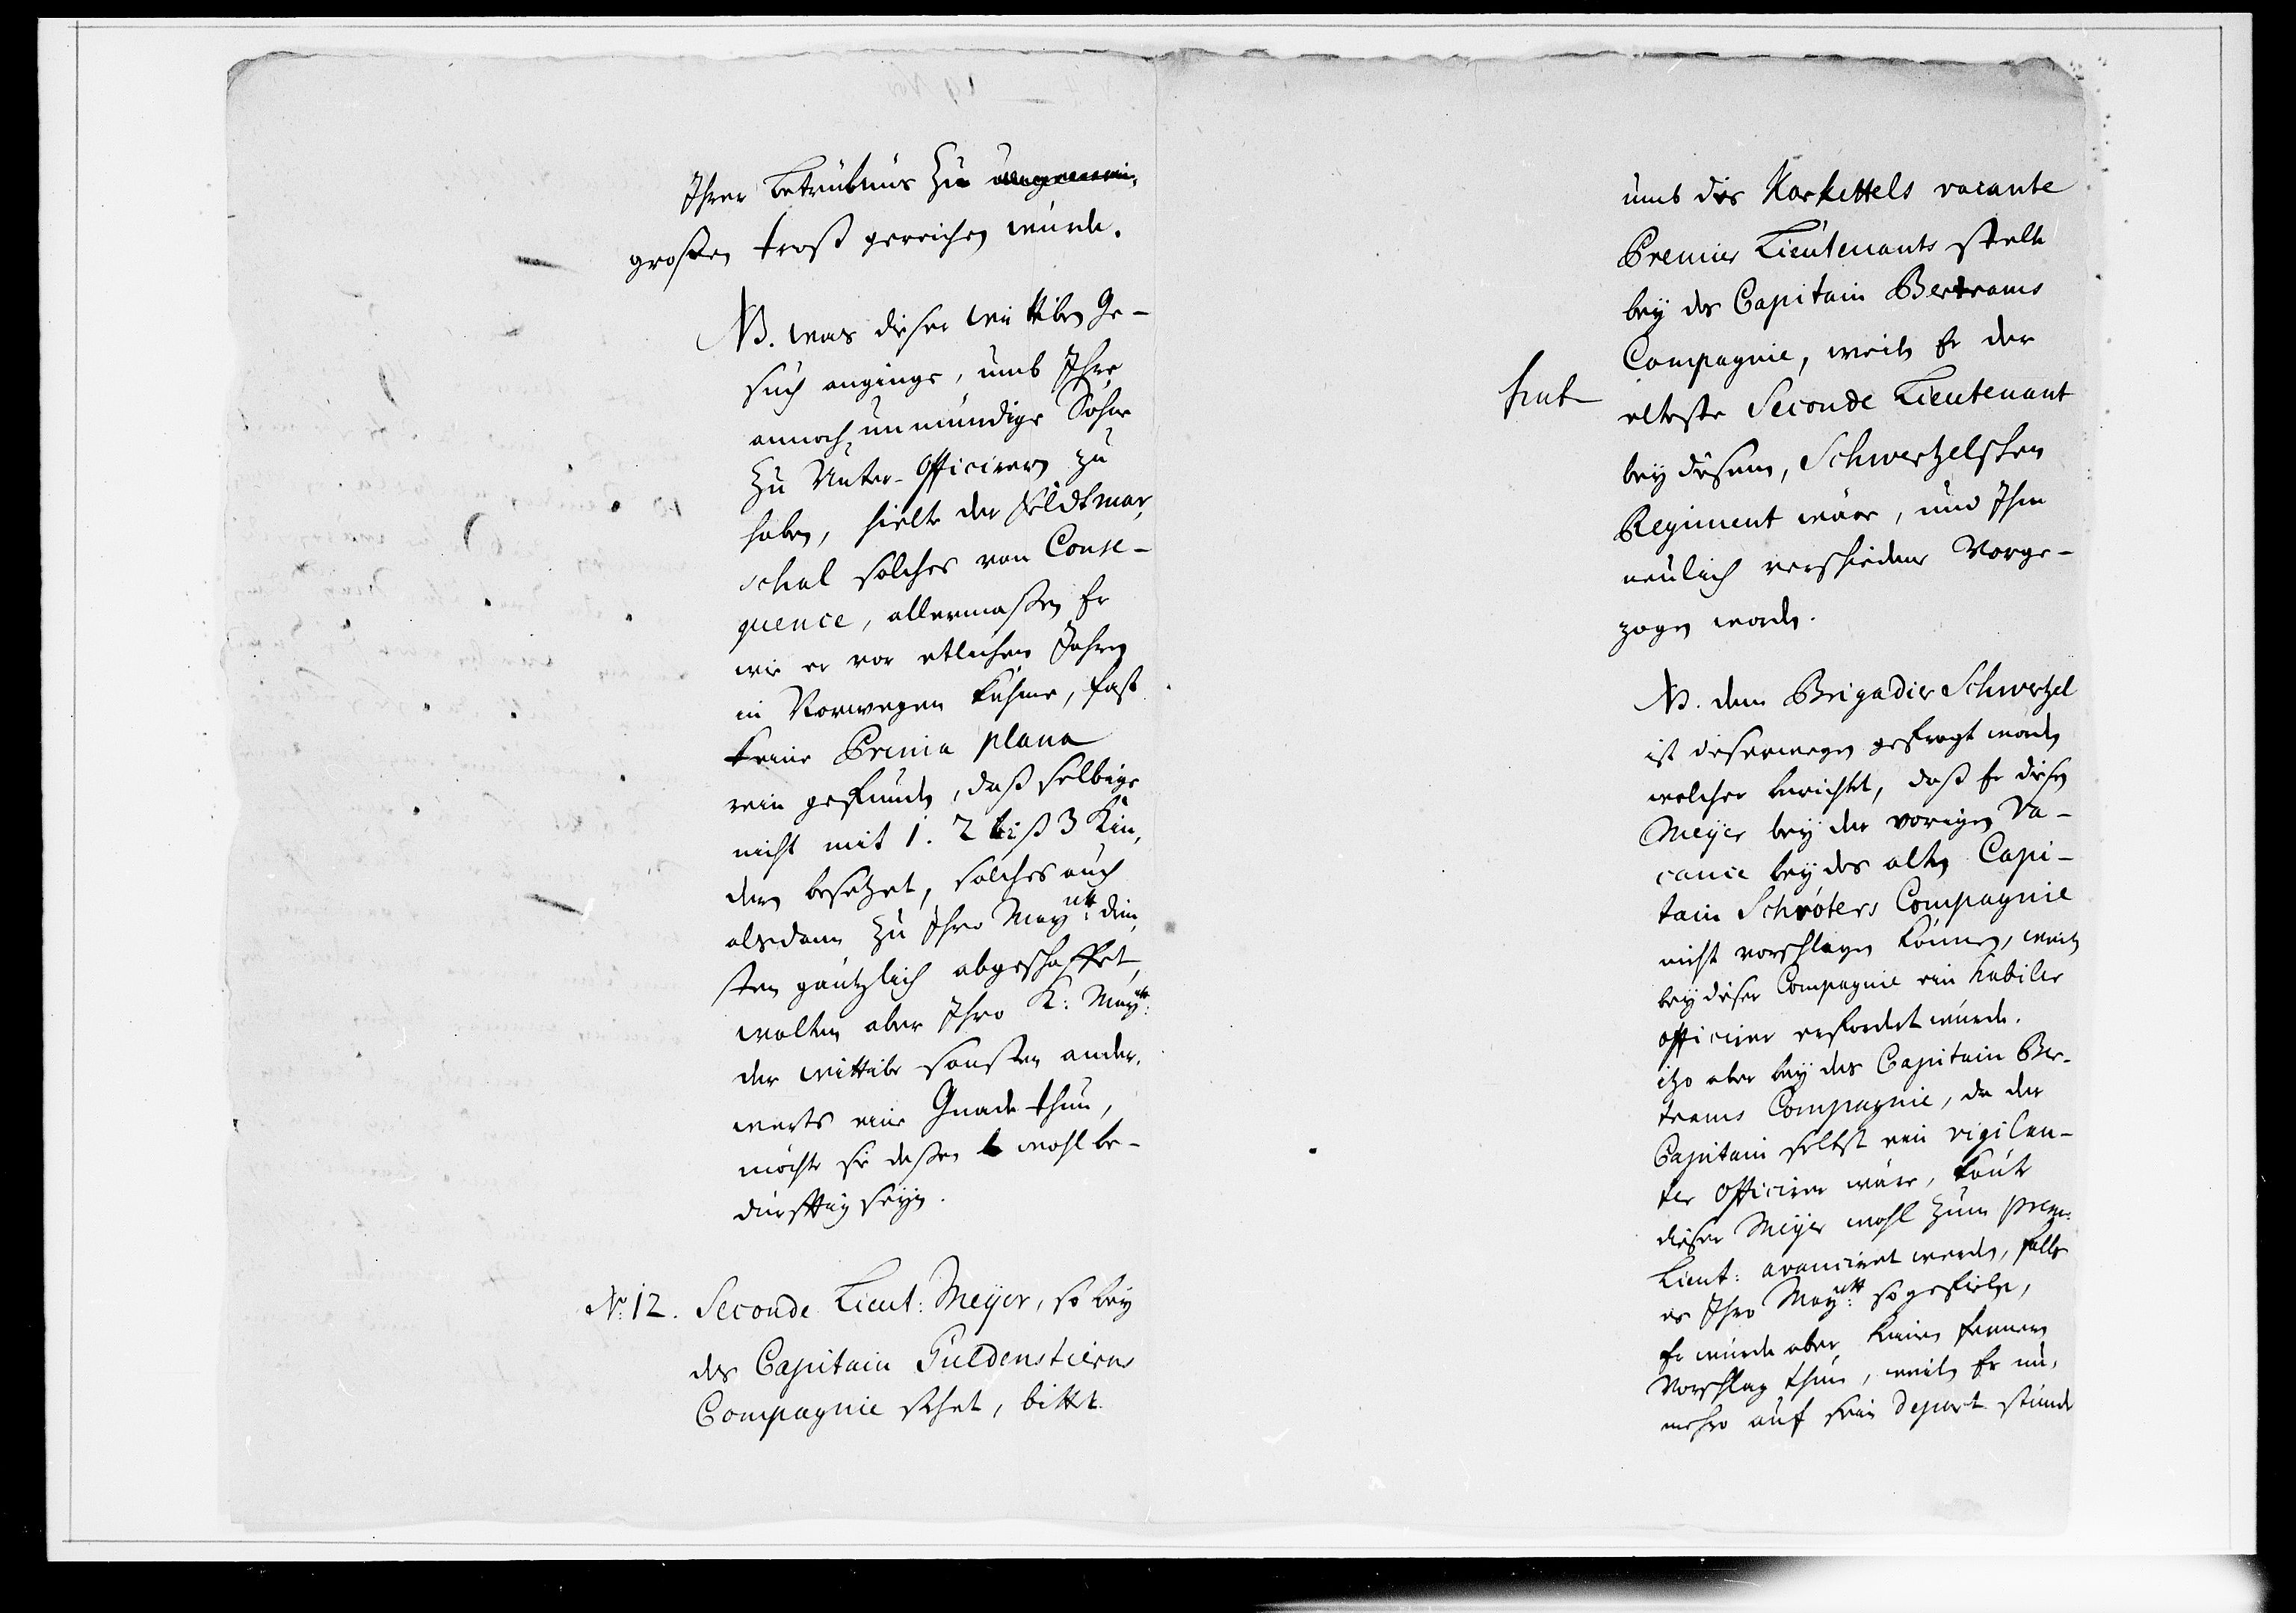 Ihrer Betrübnus zu ungemein,
großen trost gereichen würde.
NB. was dieser Wittiben Ge-
such anginge, umb Ihre
annoch unmündige Söhne
zu Unter-Officirern zu
haben, hielte der Feldtmar,
schal solches von Conse-
quence, allermaßen Er
wie er vor etlichen Jahren
in Norwegen kähme, fast
keine Prima plana
rein gefunden, daß selbige
nicht mit 1. 2 biß 3 Kin,
dern besetzet, solches auch
alsdann zu Ihro Maytt: dien,
sten gäntzlich abgeschaffet,
wolten aber Ihro K: Maytt:
der Wittibe sonsten ander,
werts eine Gnade thun,
möchte sie deßen wohl be-
dürfftig seyn.
No: 12. Seconde Lieut: Meyer, so bey
des Capitain Güldenstierns
Compagnie stehet, bittet
umb des Korkettels vacante
Premier Lieutenants stelle
bey des Capitain Bertrams
Compagnie, weiln Er der
elteste Seconde Lieutenant
bey diesem, Schwertzelschen
Regiment wäre, und Ihm
neulich verschiedene Vorge-
zogen worden.
NB. dem Brigadier Schwertzel
ist dieserwegen gefragt worden
welcher berichtet, daß Er diesen
Meyer bey der vorigen Va-
cance bey des alten Capi-
tain Schröters Compagnie
nicht vorschlagen können, weiln
bey dieser Compagnie ein habiler
officirer erfordert würde.
itzo aber bey des Capitain Ber-
trams Compagnie, da der
Capitain selbst ein vigilan-
ter Officirer wäre, könte
dieser Meyer wohl zum prem:
Lieut: avanciret werden, falls
es Ihro Maytt: so gefiele,
Er würde aber keinen fernern
Vorschlag thun, weiln Er nu,
mehro auf sein depart stünde